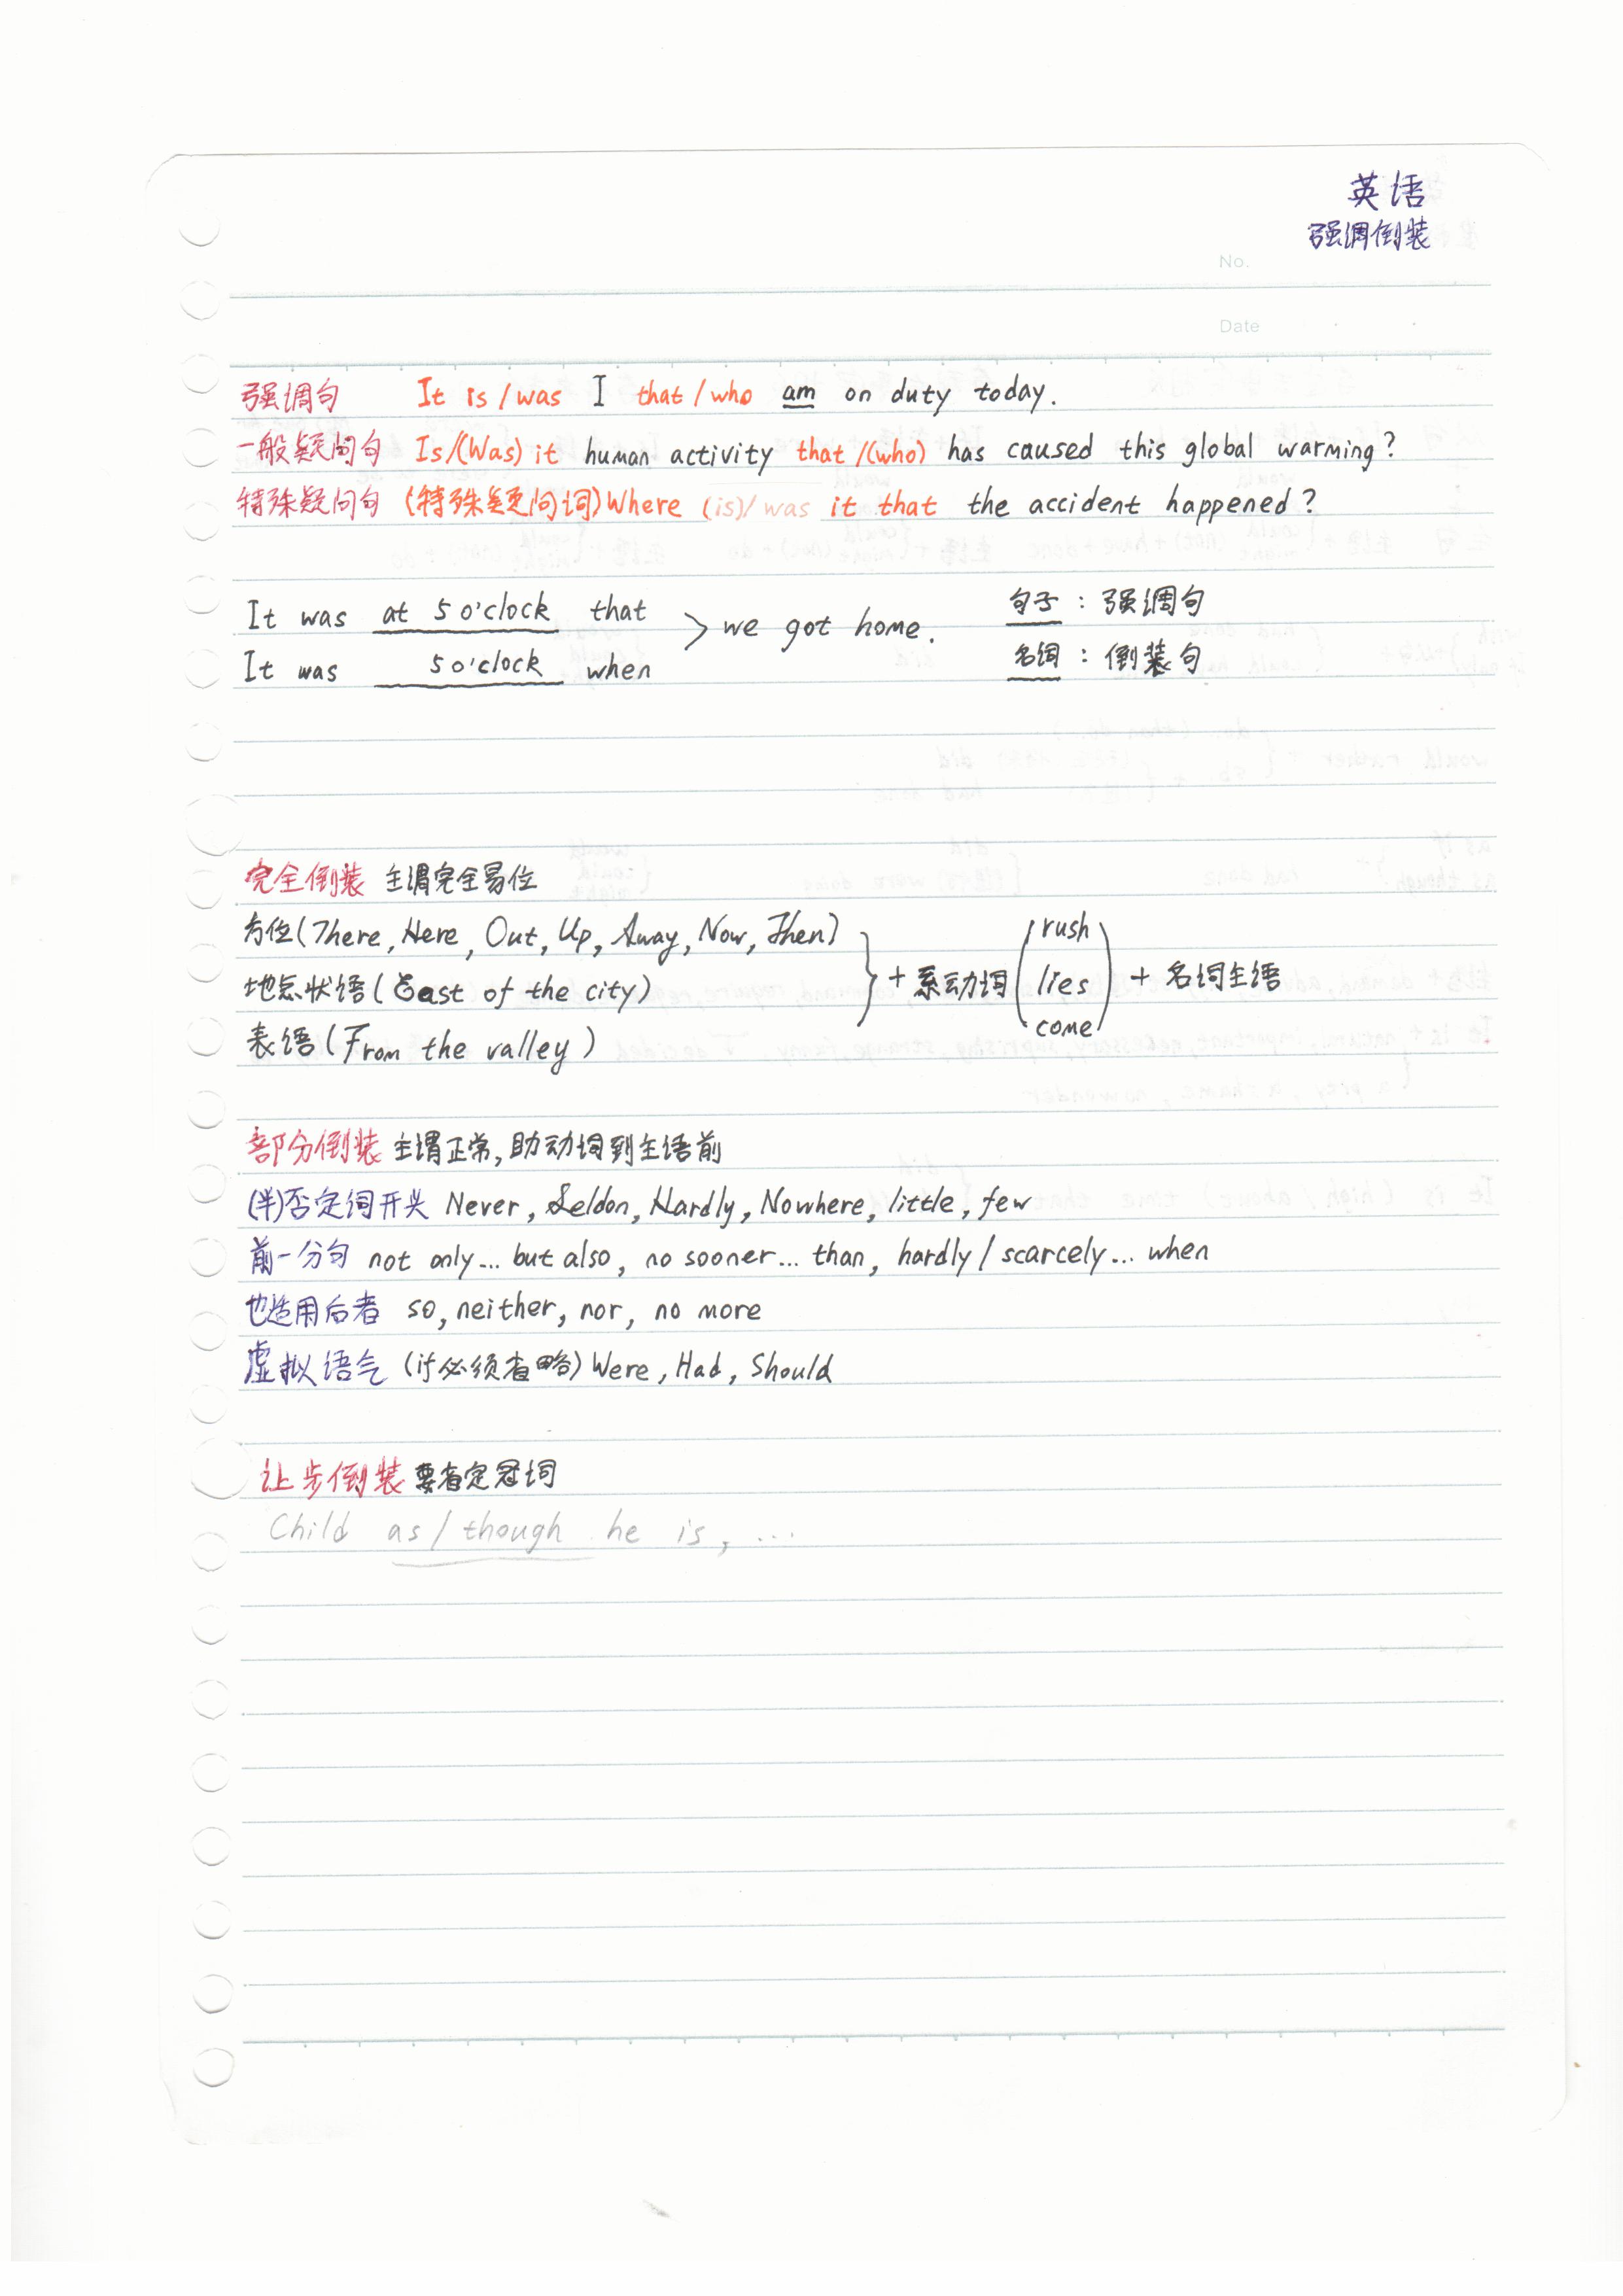 英语
强调倒装
No.
Date
强调句 It is/was I that/who am on duty today.
一般疑问句 Is/(Was) it human activity that/(who) has caused this global warming?
特殊疑问句 (特殊疑问词)Where (is)/was it that the accident happened?
It was at 5 o'clock that
It was 5 o'clock when
> we got home.
句子：强调句
名词：倒装句
完全倒装 主谓完全易位
方位(There, Here, Out, Up, Away, Now, Then)
地点状语(East of the city)
表语(From the valley)
} + 系动词 (rush lies come) + 名词主语
部分倒装 主谓正常, 助动词到主语前
(半)否定词开头 Never, Seldon, Hardly, Nowhere, little, few
前一分句 not only... but also, no sooner... than, hardly/scarcely... when
也适用后者 so, neither, nor, no more
虚拟语气 (if必须省略) Were, Had, Should
让步倒装 要省定冠词
Child as/though he is, ...